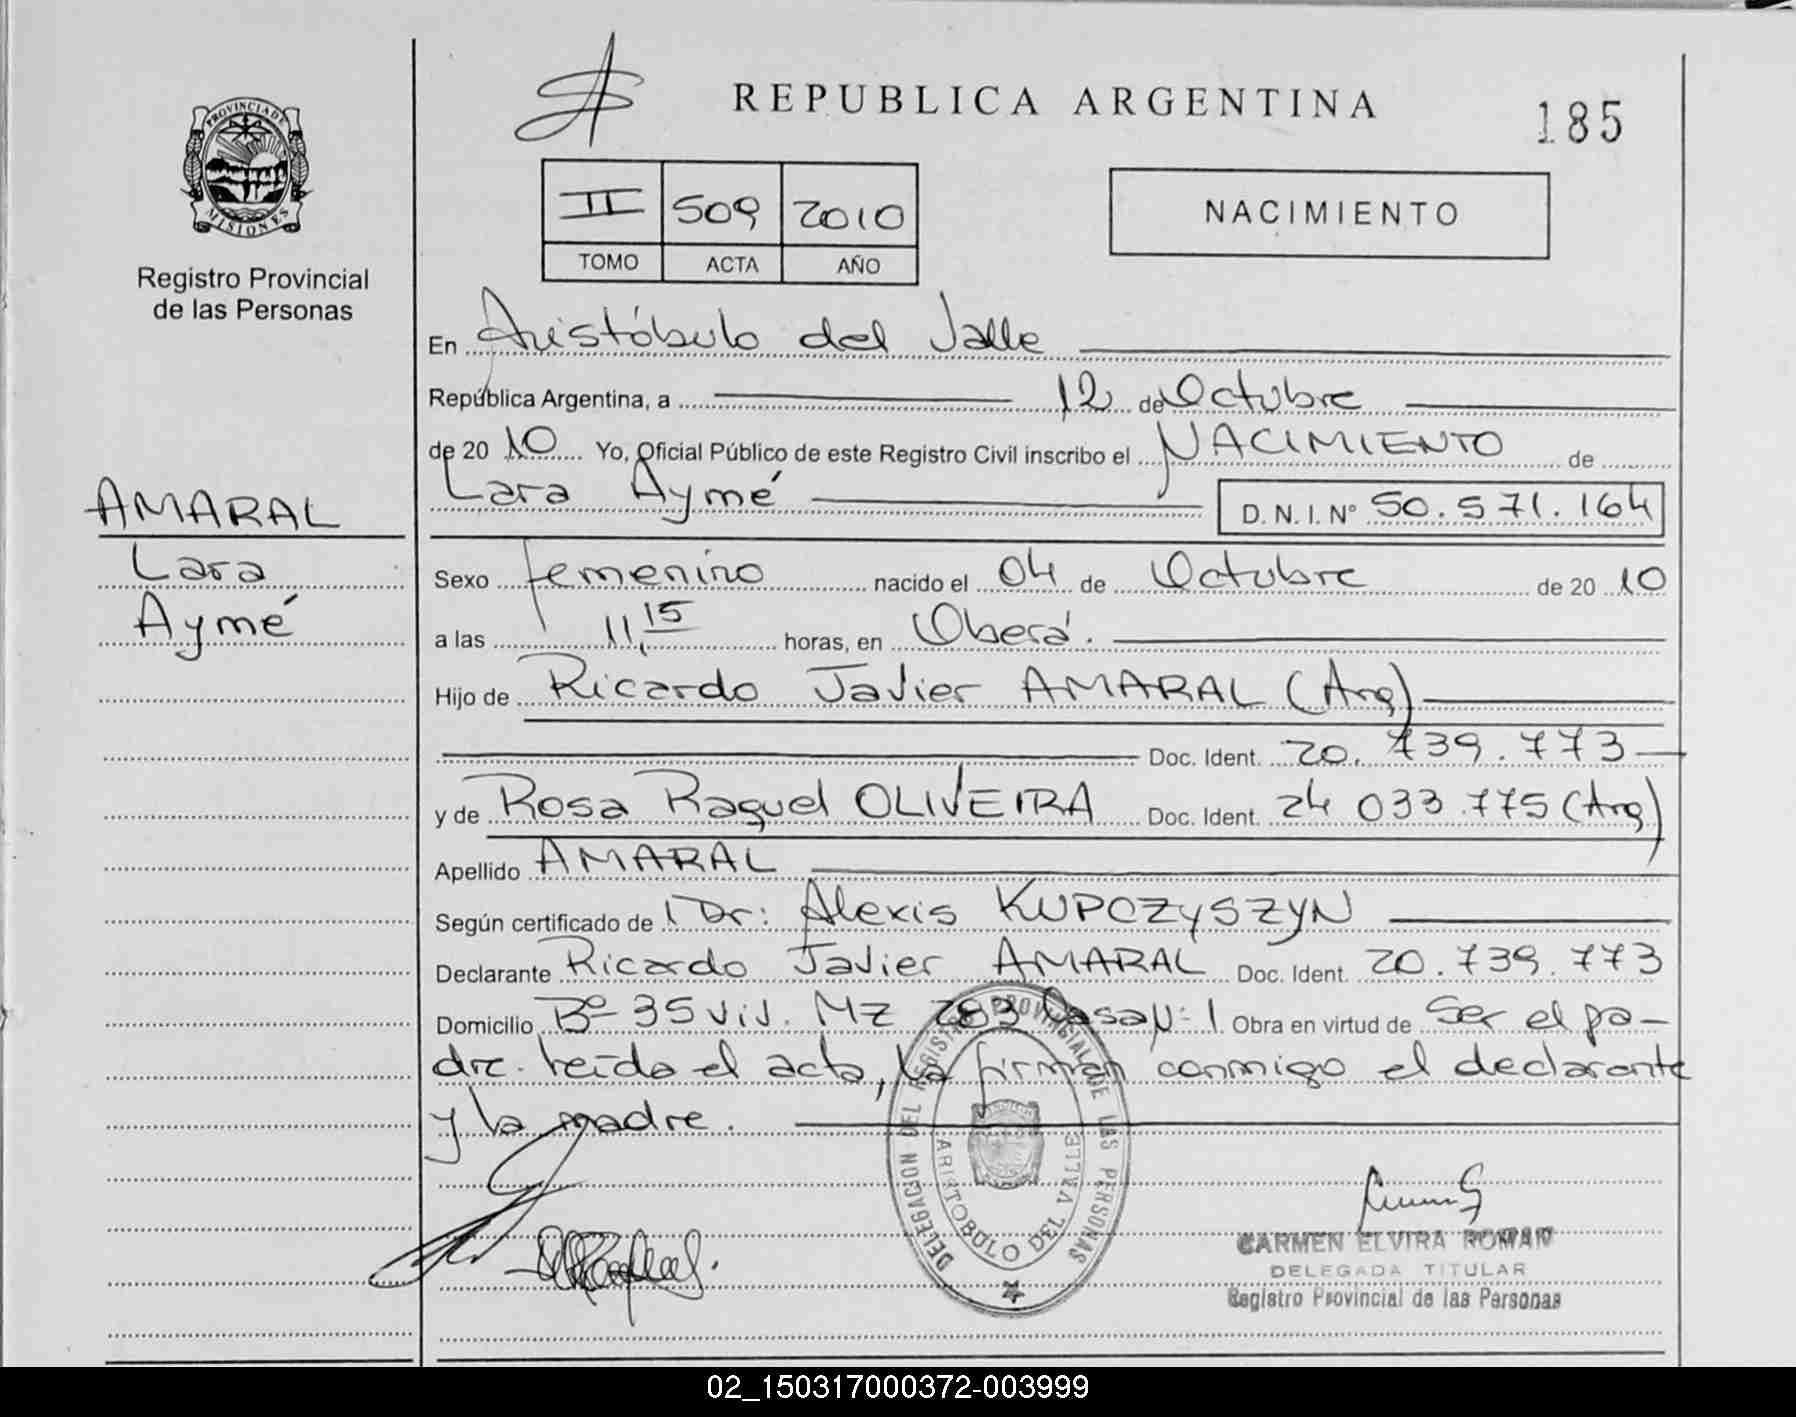 PROVINCIA DE
MISIONES
Registro Provincial
de las Personas
AMARAL
Lara
Aymé
REPUBLICA ARGENTINA
185
II 509 2010
TOMO ACTA AÑO
NACIMIENTO
En Aristóbulo del Valle
República Argentina, a 12 de Octubre
de 20 10 Yo, Oficial Público de este Registro Civil inscribo el NACIMIENTO de
Lara Aymé D. N. I. Nº 50.571.164
Sexo femenino nacido el 04 de Octubre de 20 10
a las 11,15 horas, en Oberá.
Hijo de Ricardo Javier AMARAL (Arg)
Doc. Ident. 20.739.773
y de Rosa Raquel OLIVEIRA Doc. Ident. 24 033.775 (Arg)
Apellido AMARAL
Según certificado de Dr: Alexis KUPCZYSZYN
Declarante Ricardo Javier AMARAL Doc. Ident. 20.739.773
Domicilio Bº 35 viv. Mz 283 Casa Nº 1 Obra en virtud de ser el pa-
dre. Leída el acta, la firman conmigo el declarante
y la madre.
DELEGACION DEL REGISTRO PROVINCIAL DE LAS PERSONAS
ARISTOBULO DEL VALLE
CARMEN ELVIRA ROMAN
DELEGADA TITULAR
Registro Provincial de las Personas
02_150317000372-003999